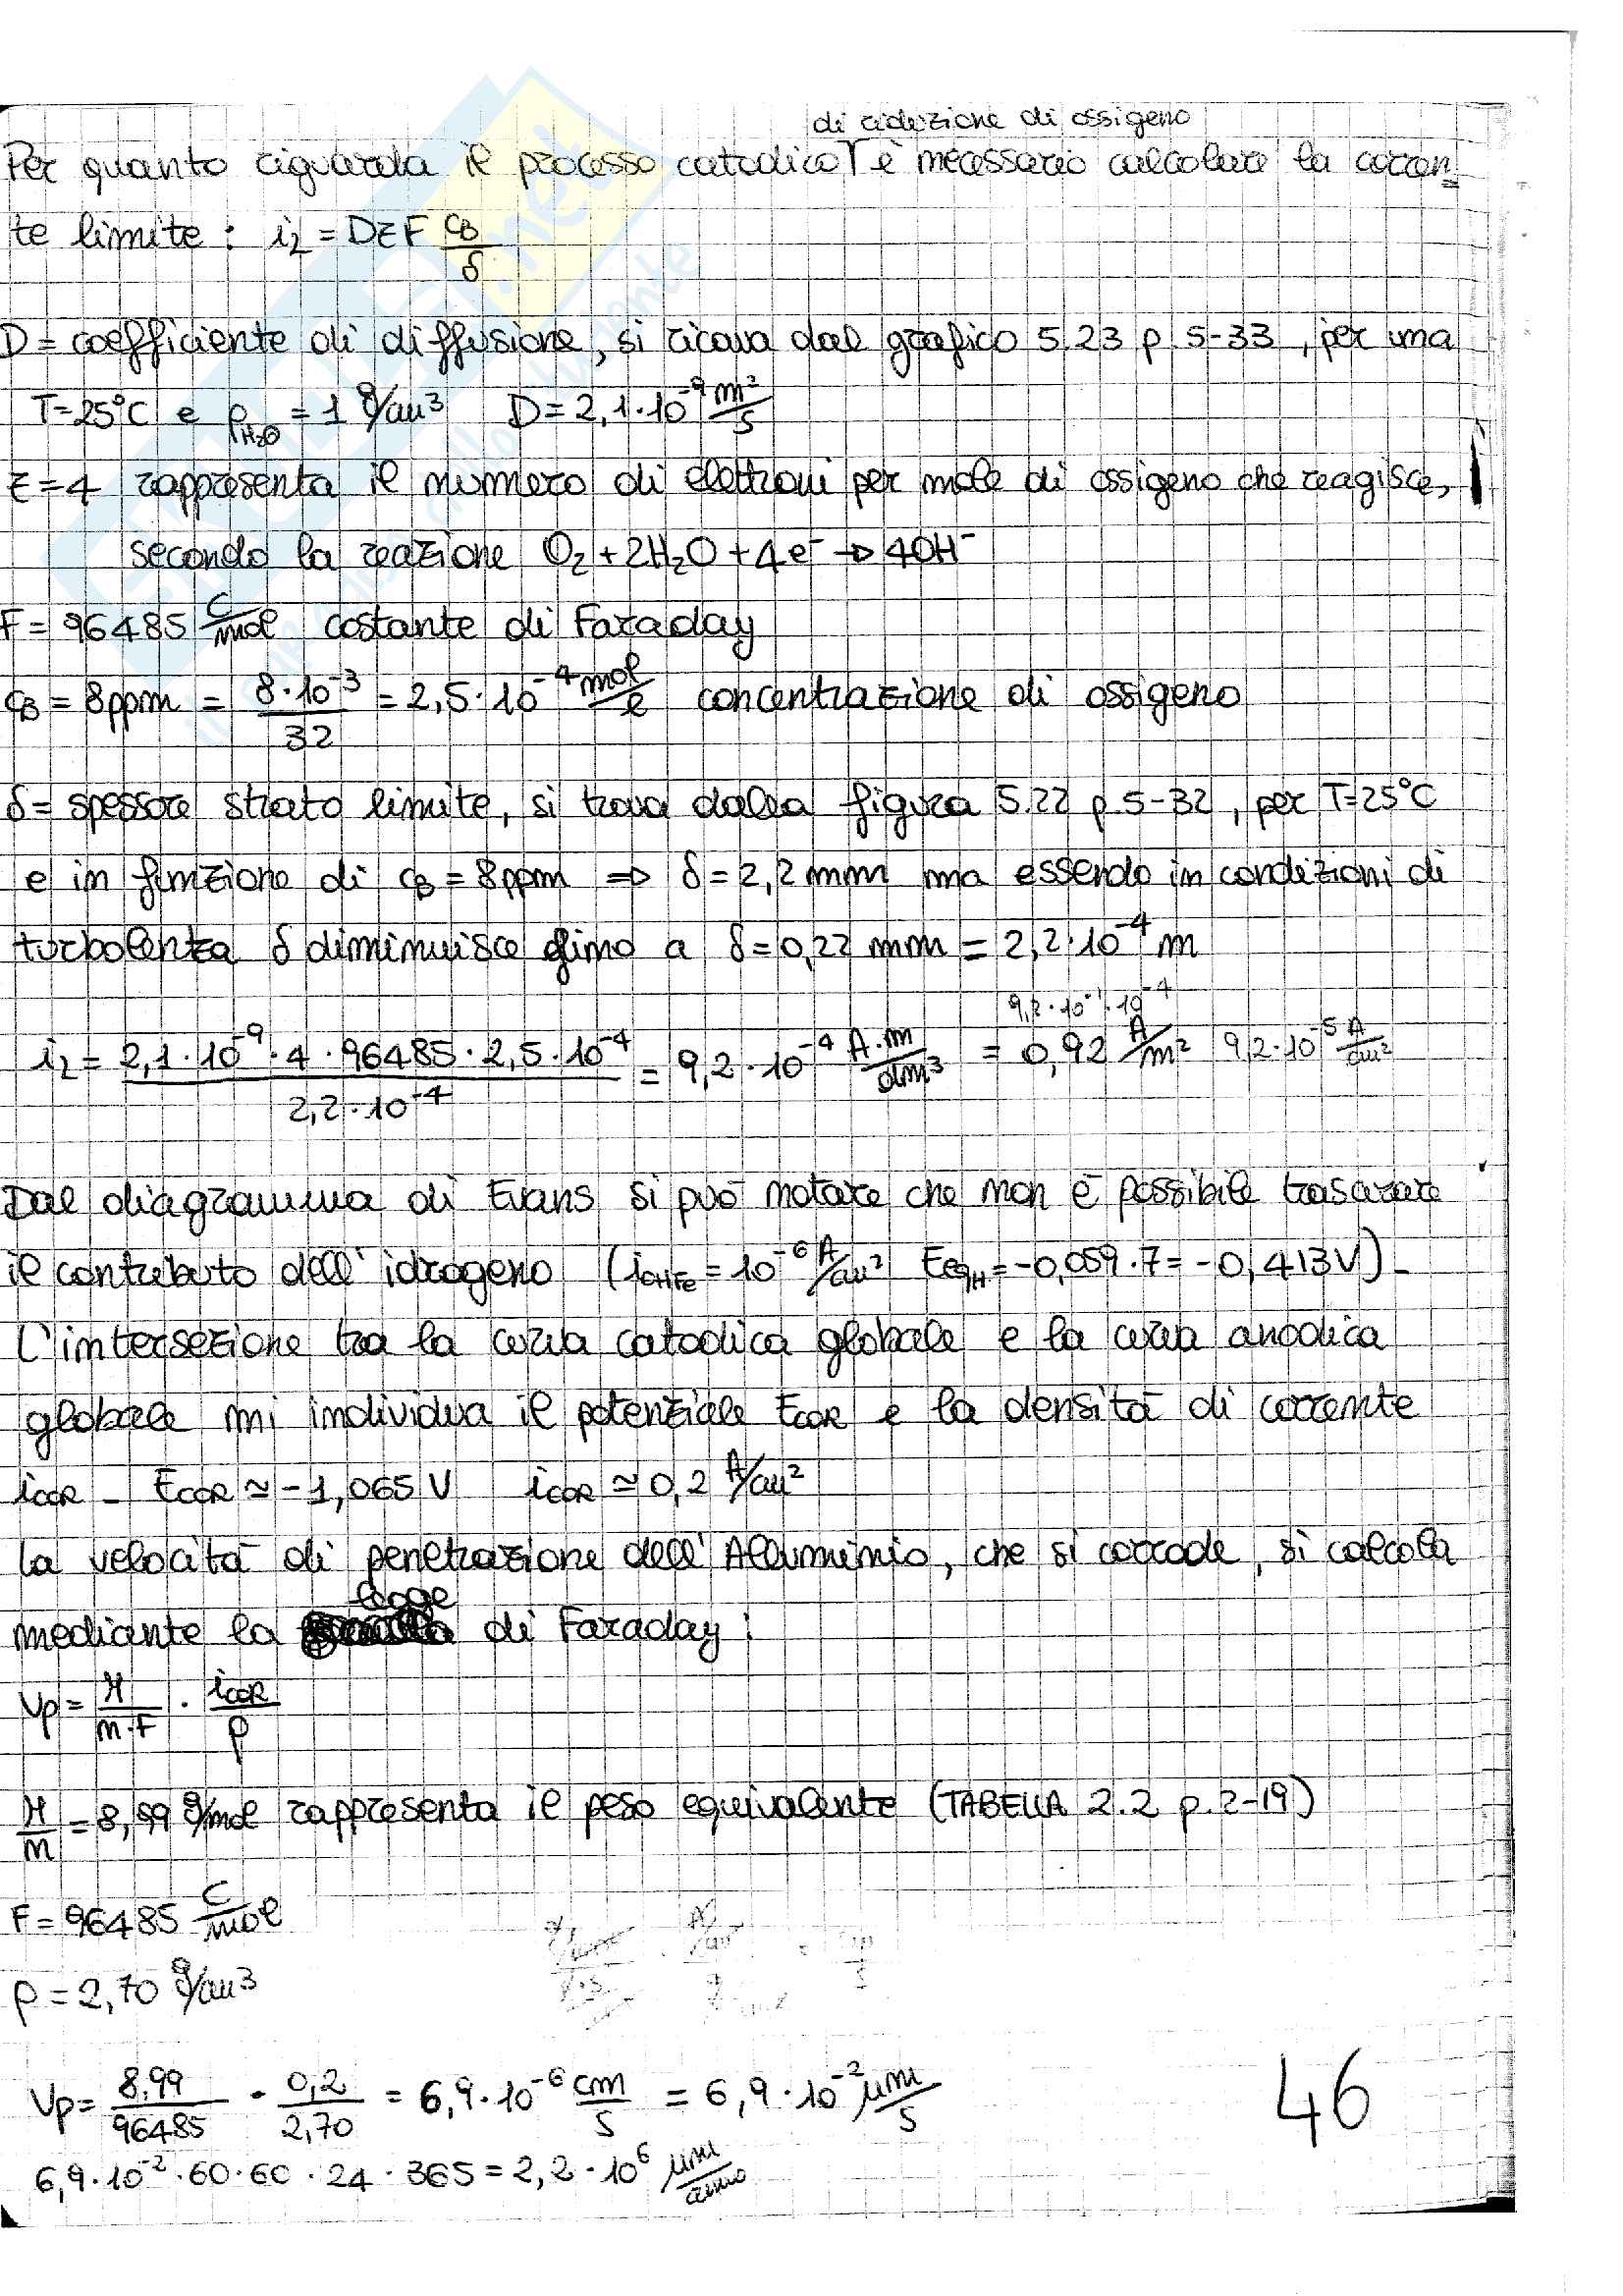 di riduzione di ossigeno
Per quanto riguarda il processo catodico è necessario calcolare la corren=
te limite : iL = DzF cB/δ
D = coefficiente di diffusione, si ricava dal grafico 5.23 p. 5-33, per una
T=25°C e ρH2O = 1 g/cm³ D = 2,1·10⁻⁹ m²/s
z=4 rappresenta il numero di elettroni per mole di ossigeno che reagisce,
secondo la reazione O₂+2H₂O+4e⁻→4OH⁻
F = 96485 C/mol costante di Faraday
cB = 8ppm = 8·10⁻³/32 = 2,5·10⁻⁴ mol/l concentrazione di ossigeno
δ = spessore strato limite, si trova dalla figura 5.22 p.5-32, per T=25°C
e in funzione di cB = 8ppm ⇒ δ = 2,2 mm ma essendo in condizioni di
turbolenza δ diminuisce fino a δ = 0,22 mm = 2,2·10⁻⁴ m
9,2·10⁻¹·10⁻⁴
iL = 2,1·10⁻⁹·4·96485·2,5·10⁻⁴/2,2·10⁻⁴ = 9,2·10⁻⁴ A·m/dm³ = 0,92 A/m² 9,2·10⁻⁵ A/cm²
Dal diagramma di Evans si può notare che non è possibile trascurare
il contributo dell'idrogeno (ioHFe = 10⁻⁶ A/cm² EeqH = -0,059·7 = -0,413V)-
L'intersezione tra la curva catodica globale e la curva anodica
globale mi individua il potenziale ECOR e la densità di corrente
iCOR - ECOR ≃ -1,065 V iCOR ≃ 0,2 A/cm²
La velocità di penetrazione dell'Alluminio, che si corrode, si calcola
legge
mediante la di Faraday:
Vp = M/n·F · iCOR/ρ
M/n = 8,99 g/mol rappresenta il peso equivalente (TABELLA 2.2 p.2-19)
F = 96485 C/mol
ρ = 2,70 g/cm³
Vp = 8,99/96485 · 0,2/2,70 = 6,9·10⁻⁶ cm/s = 6,9·10⁻² μm/s
46
6,9·10⁻²·60·60·24·365 = 2,2·10⁶ μm/anno